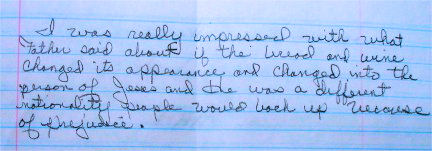 I was really impressed with what
Father said about if the bread and wine
changed its appearance and changed into the
person of Jesus and He was a different
nationality people would back up because
of prejudice.